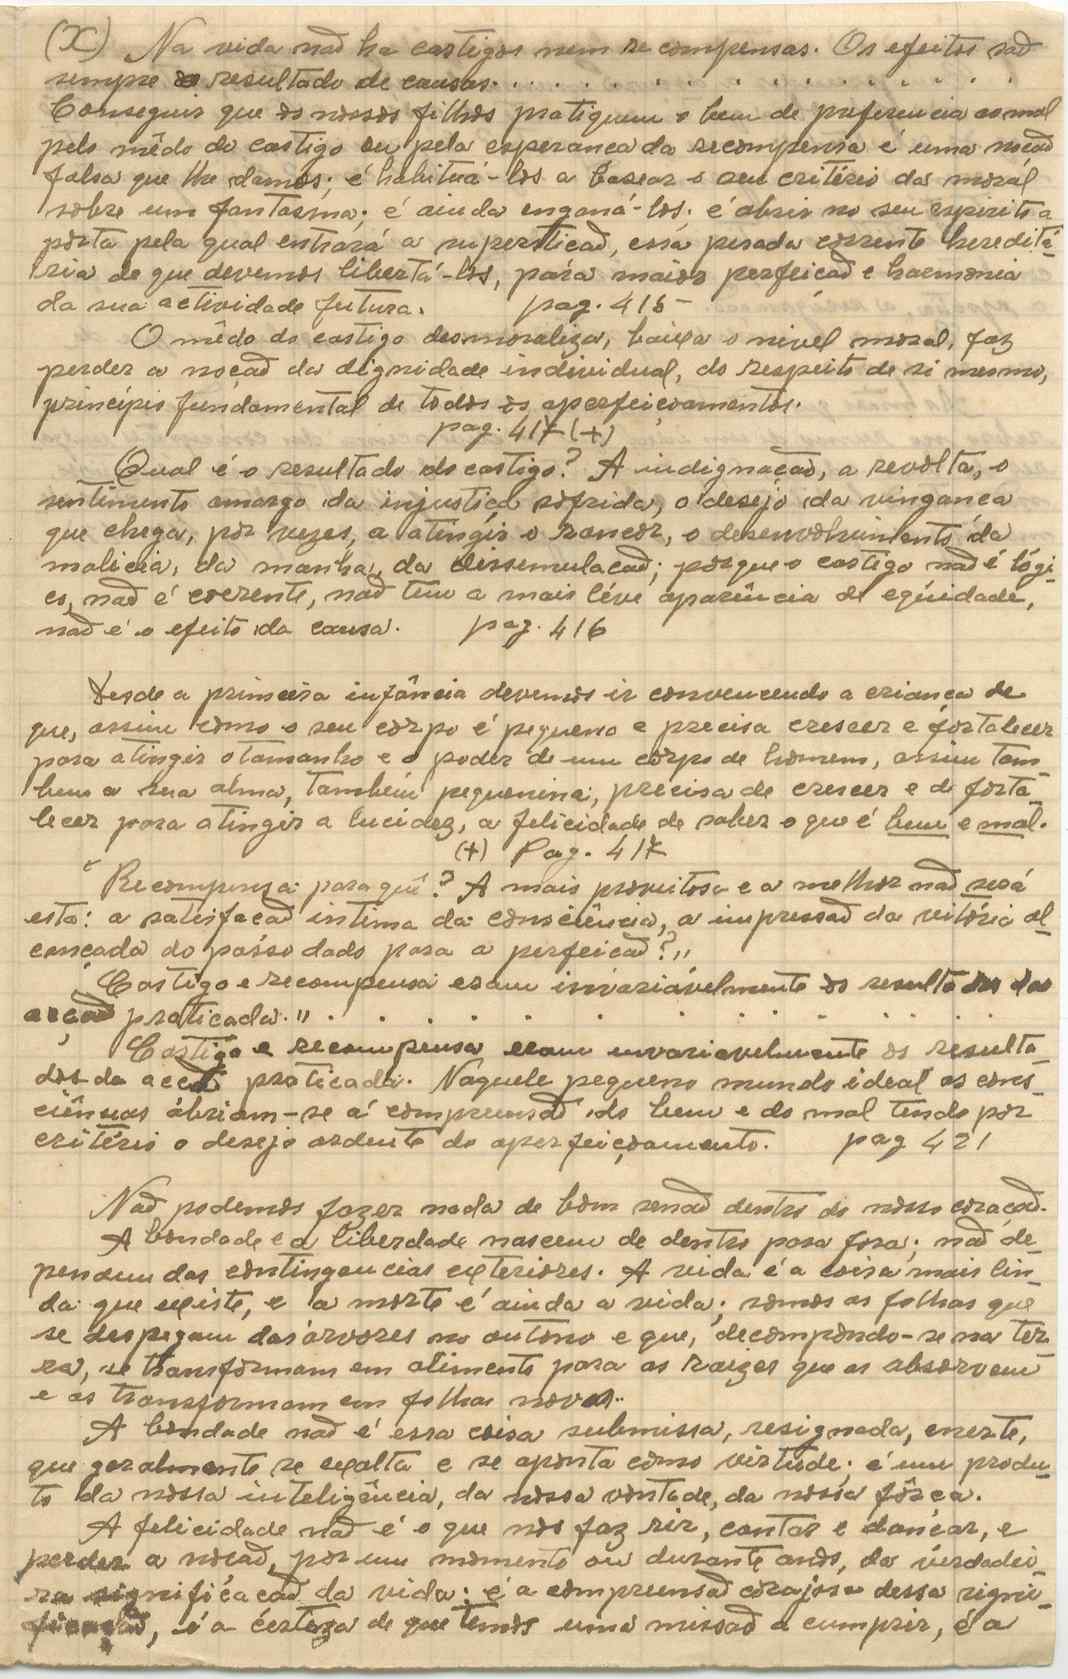 (X) Na vida não ha castigos nem recompensas. Os efeitos são
sempre o resultado de causas. . . . . . . . . . . . . . .
Conseguir que os nossos filhos pratiquem o bem de preferencia ao mal
pelo mêdo do castigo ou pela esperança da recompensa é uma noção
falsa que lhe damos; é habituá-los a basear o seu critério da moral
sobre um fantasma; é ainda enganá-los; é abrir no seu espirito a
porta pela qual entrará a superstição, essa pesada corrente heredità-
ria de que devemos libertá-los, para maior perfeição e harmonia
da sua actividade futura. pag. 415-
O mêdo do castigo desmoraliza, baixa o nivel moral, faz
perder a noção da dignidade individual, do respeito de si mesmo,
principio fundamental de todos os aperfeiçoamentos.
pag. 417 (+)
Qual é o resultado do castigo? A indignação, a revolta, o
sentimento amargo da injustiça sofrida, o desejo da vingança
que chega, por vezes, a atingir o rancor, o desenvolvimento da
malicia, da manha, da dissimulação; porque o castigo não é lógi-
co, não é coerente, não tem a mais léve aparência de eqüidade,
não é o efeito da causa. pag. 416
Desde a primeira infância devemos ir convencendo a criança de
que, assim como o seu corpo é pequeno e precisa crescer e fortalecer
para atingir o tamanho e o poder de um corpo de homem, assim tam-
bem a sua alma, também pequenina, precisa de crescer e de forta-
lecer para atingir a lucidez, a felicidade de saber o que é bem e mal.
(+) Pag. 417
"Recompensa para quê? A mais proveitosa e a melhor não será
esta: a satisfação intima da consciência, a impressão da vitória al-
cançada do passo dado para a perfeição?"
"Castigo e recompensa eram invariávelmente os resultados da
acção praticada." . . . . . . . . . . . .
Castigo e recompensa eram invariavelmente os resulta-
dos da acção praticada. Naquele pequeno mundo ideal as cons-
ciências abriam-se á compreensão do bem e do mal tendo por
critério o desejo ardente do aperfeiçoamento. pag 421
Não podemos fazer nada de bom senão dentro do nosso coração.
A bondade e a liberdade nascem de dentro para fora; não de-
pendem das contingencias exteriores. A vida é a coisa mais lin-
da que existe, e a morte é ainda a vida; somos as folhas que
se despegam das árvores no outono e que, decompondo-se na ter-
ra, se transformam em alimento para as raizes que as absorvem
e as transformam em folhas novas.
A bondade não é essa coisa submissa, resignada, inerte,
que geralmente se exalta e se aponta como virtude; é um produ-
to da nossa inteligência, da nossa vontade, da nossa fôrça.
A felicidade não é o que nos faz rir, cantar e dançar, e
perder a noção, por um momento ou durante anos, da verdadei-
ra significação da vida; é a compreensão corajosa dessa signi-
ficação, é a certeza de que temos uma missão a cumprir, é a